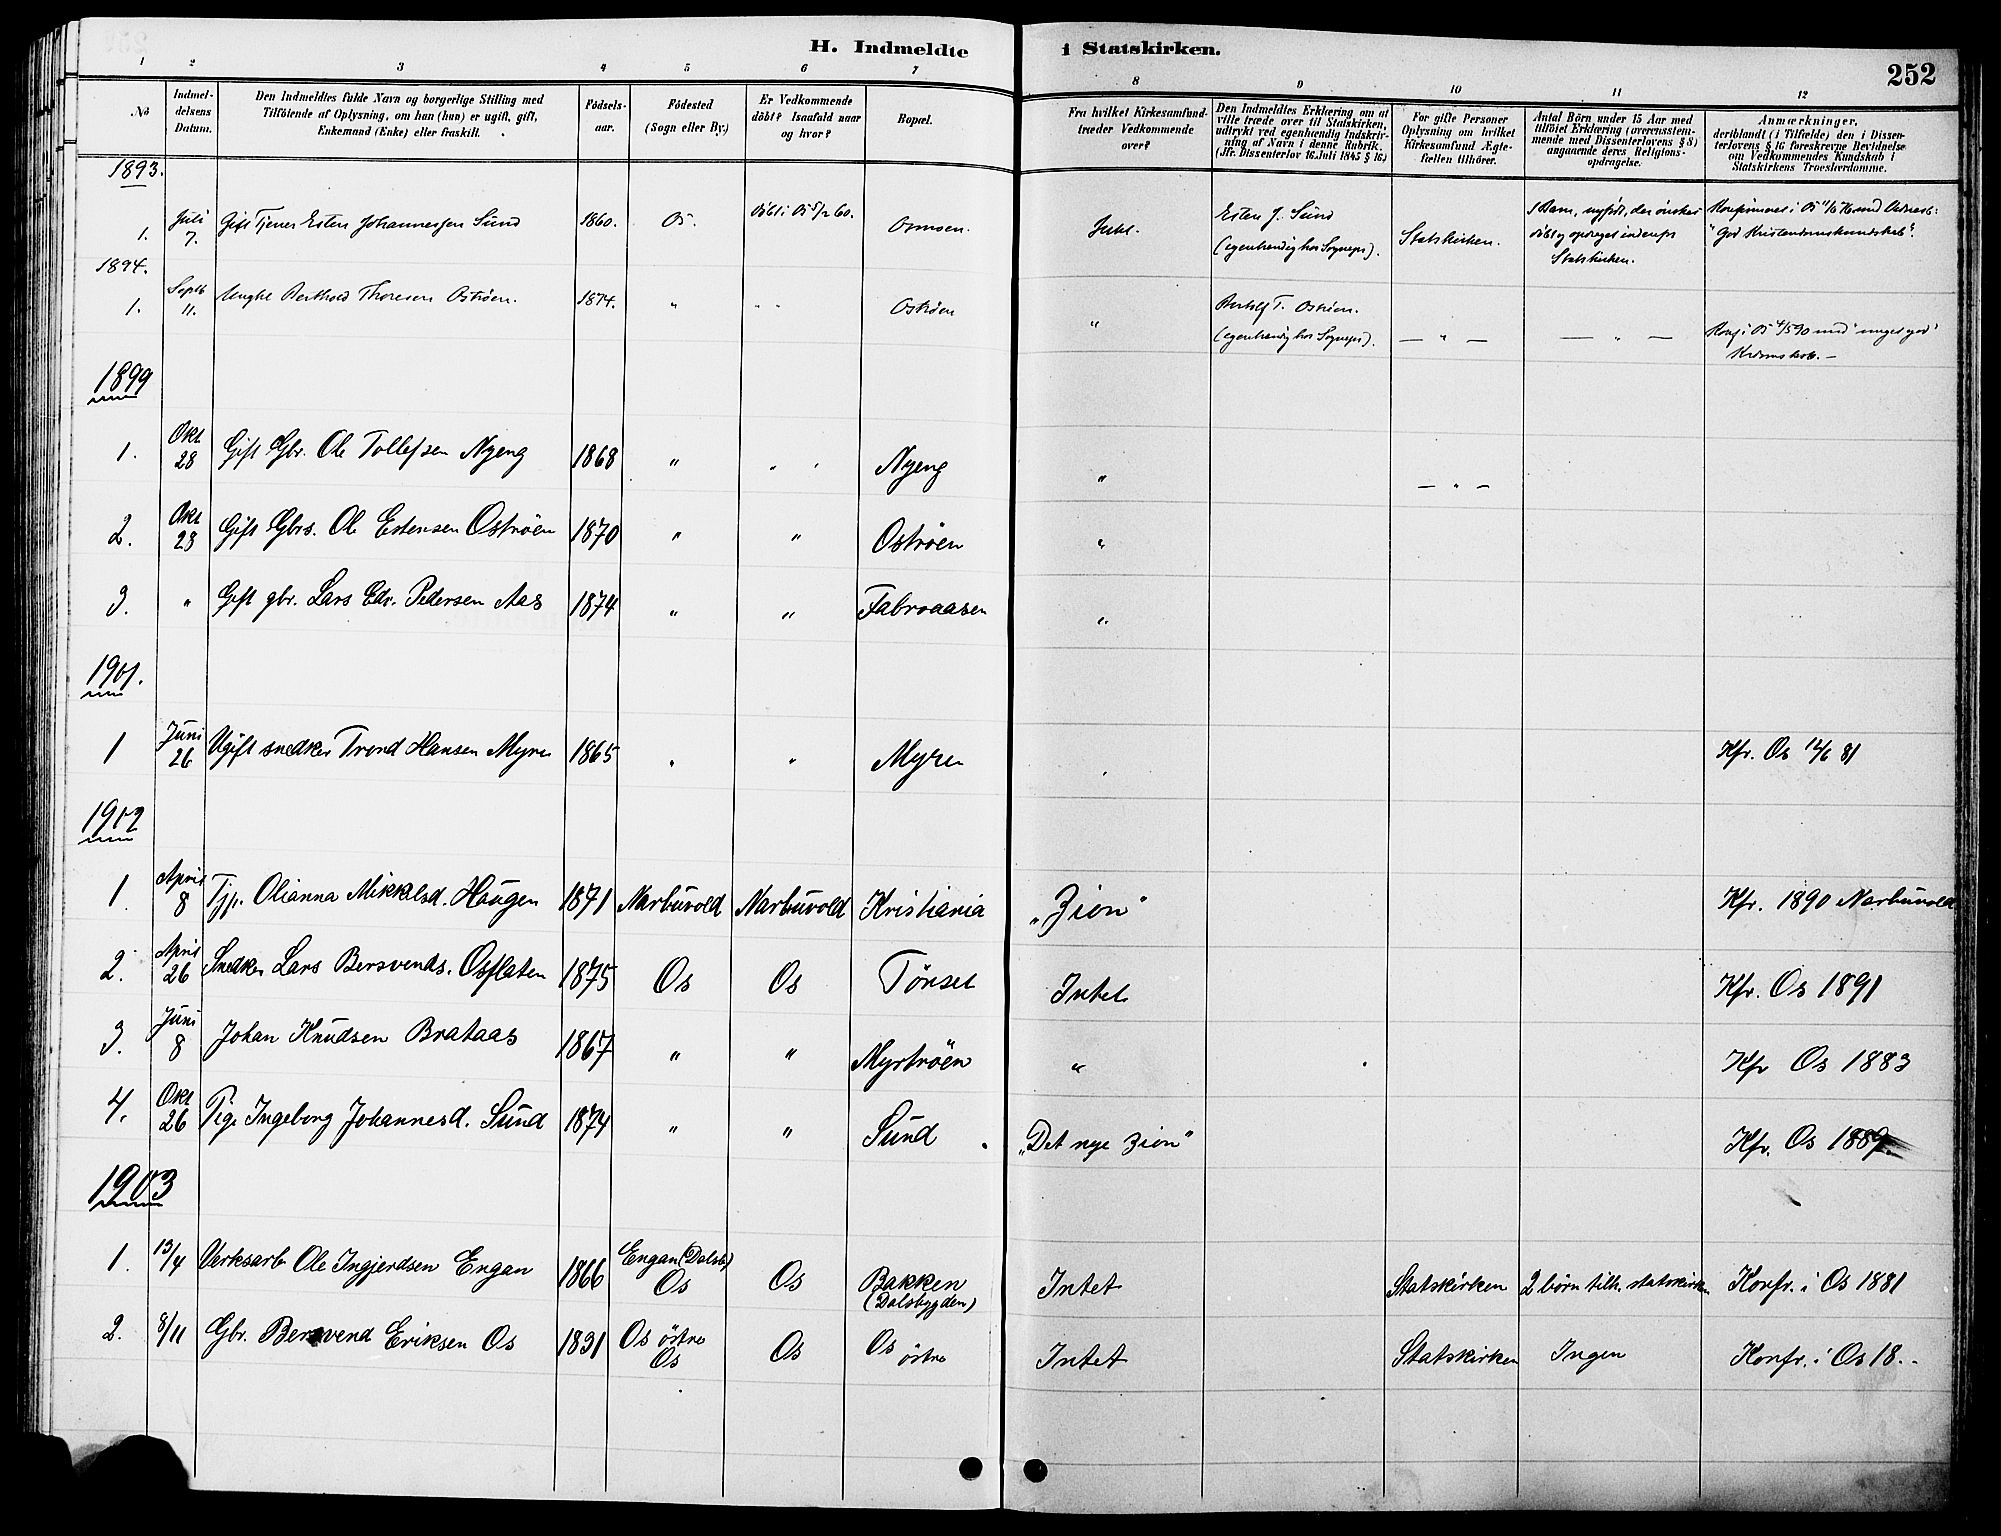 H. Indmeldte i Statskirken.
252
1 2 3 4 5 6 7 8 9 10 11 12
No
Indmeldelsens Datum.
Den Indmeldtes fulde Navn og borgerlige Stilling med
Tilföiende af Oplysning, om han (hun) er ugift, gift,
Enkemand (Enke) eller fraskilt.
Födselsaar.
Födested
(Sogn eller By.)
Er Vedkommende
döbt? Isaafald naar
og hvor?
Bopæl.
Fra hvilket Kirkesamfund
træder Vedkommende
over?
Den Indmeldtes Erklæring om at
ville træde over til Statskirken,
udtrykt ved egenhændig Indskrivning
af Navn i denne Rubrik.
(Jfr. Dissenterlov 16 Juli 1845 § 16.)
For gifte Personer
Oplysning om hvilket
Kirkesamfund Ægtefællen
tilhörer.
Antal Börn under 15 Aar med
tilföiet Erklæring (overensstemmende
med Dissenterlovens § 8)
angaaende deres Religionsopdragelse.
Anmærkninger,
deriblandt (i Tilfælde) den i Dissenterlovens
§ 16 foreskrevne Bevidnelse
om Vedkommendes Kundskab i
Statskirkens Troeslærdomme.
1893.
1. Juli 7. Gift Tjener Esten Johannessen Sund 1860. Os. döbt i Os 5/2 60. Osmoen. Intet. Esten J. Sund (egenhændig hos Sognepr). Statskirken. 1 Barn, nyfödt, der önskes döbt og opdraget indenfor Statskirken. Konfirmeret i Os 11/6 76 med Vidnesb: "God Kristendomskundskab".
1894.
1. Septb 11. Ungkl Berthold Thoresen Oströen. 1874. " " " Oströen " Bertolf T. Oströen. (egenhændig hos Sognepr). — " — — " — Konf i Os 4/5 90 med "meget god" Krdmskab. —
1899
1. Okt 28 Gift Gbr. Ole Tollefsen Nyeng 1868 " " " Nyeng " — " —
2. Okt 28 Gift Gbrs. Ole Estensen Oströen 1870 " " Oströen "
3. " Gift gbr. Lars Edv. Pedersen Aas 1874 " " Fabroaasen "
1901.
1 Juni 26 Ugift snedker Trond Hansen Myren 1865 " " Myren " Kfr. Os 12/6 81
1902
1. April 8 Tjp. Olianna Mikkelsd. Haugen 1871 Narbuvold Narbuvold Kristiania "Zion" Kfr. 1890 Narbuvold
2. April 26 Snedker Lars Bersvends. Osflaten 1875 Os Os Tönset Intet Kfr. Os 1891
3. Juni 8 Johan Knudsen Brataas 1867 " " Myströen " Kfr Os 1883
4. Okt 26 Pige Ingeborg Johannesd. Sund 1874 " " Sund. "Det nye Zion" Kfr. Os 1889.
1903
1. 13/4 Verksarb Ole Ingjerdsen Engan 1866 Engan (Dalsb) Os Os Bakken (Dalsbygden) Intet Statskirken 2 börn tilh. statskirken Konfr. i Os 1881
2. 8/11 Gbr. Bersvend Eriksen Os 1831 Os östre Os Os Os östre Intet Statskirken Ingen Konfr. i Os 18..